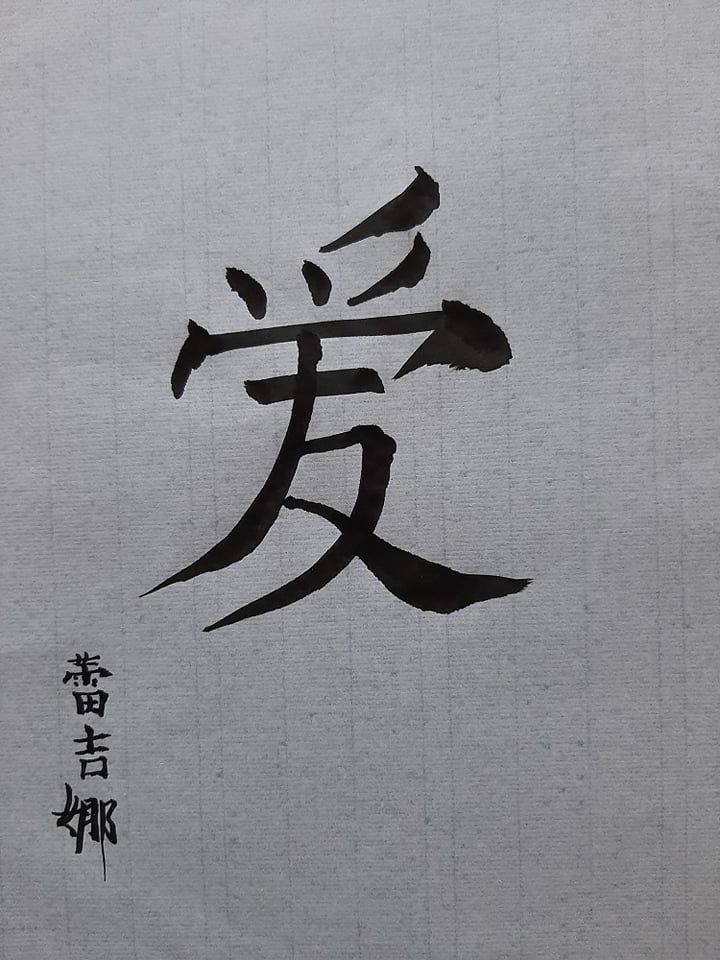 爱
蕾吉娜